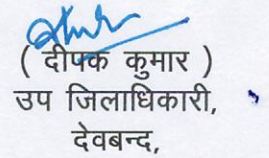 ( दीपक कुमार )
उप जिलाधिकारी,
देवबन्द,